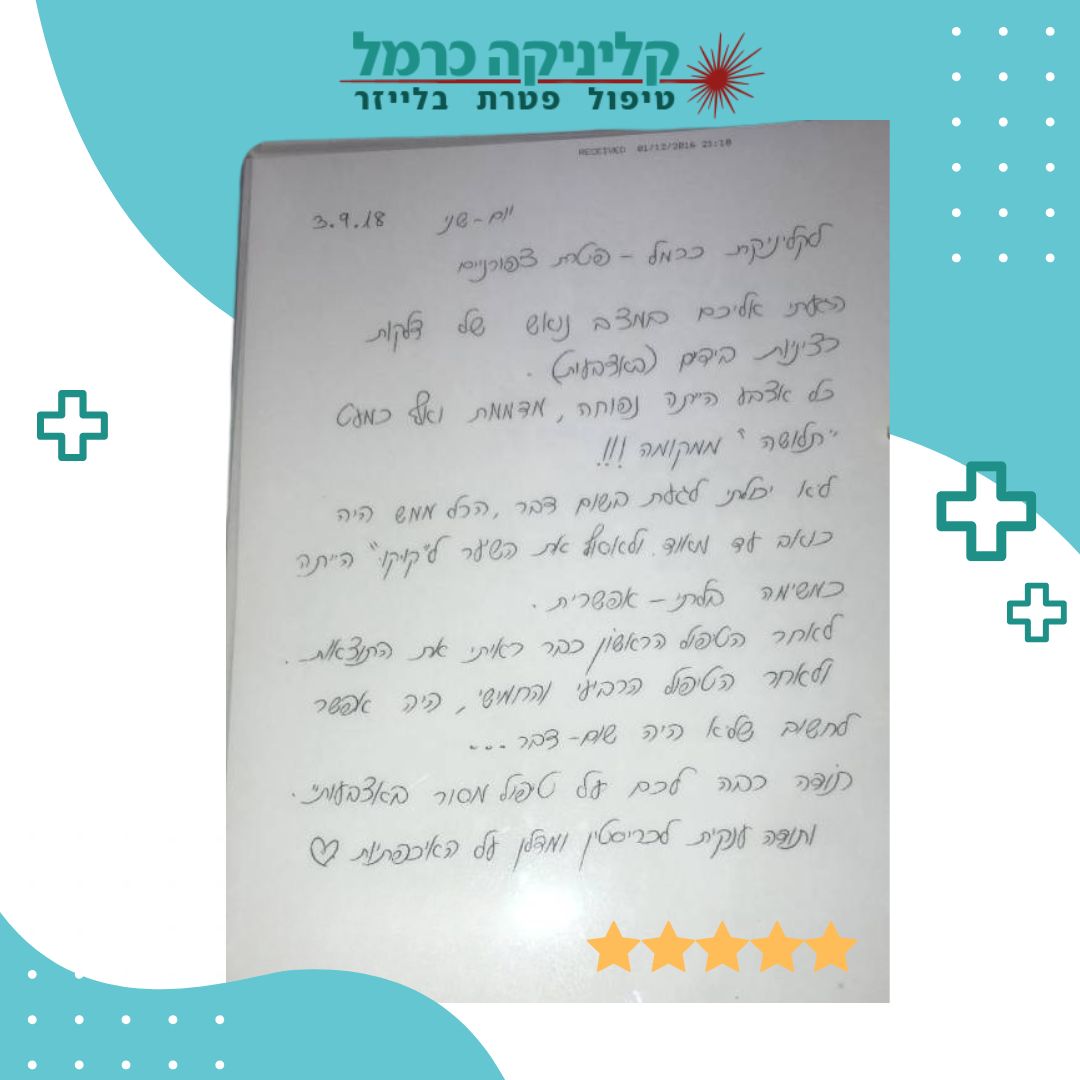 קליניקה כרמל
טיפול פטרת בלייזר
RECEIVED 01/12/2016 21:18
יום-שני 3.9.18
לקליניקת כרמל - פטרת צפורניים
הגעתי אליכם במצב נואש של דלקות
רציניות בידים (באצבעות).
כל אצבע הייתה נפוחה, מדממת ואף כמעט
"תלושה" ממקומה!!!
לא יכולתי לגעת בשום דבר, הכל ממש היה
כואב עד מאוד. ולאסוף את השער ל"קוקו" הייתה
כמשימה בלתי-אפשרית.
לאחר הטיפול הראשון כבר ראיתי את התוצאות.
ולאחר הטיפול הרביעי והחמישי, היה אפשר
לחשוב שלא היה שום-דבר...
תודה רבה לכם על טיפול מסור באצבעותיי.
ותודה ענקית לכריסטין ומדלן על האיכפתיות ♡